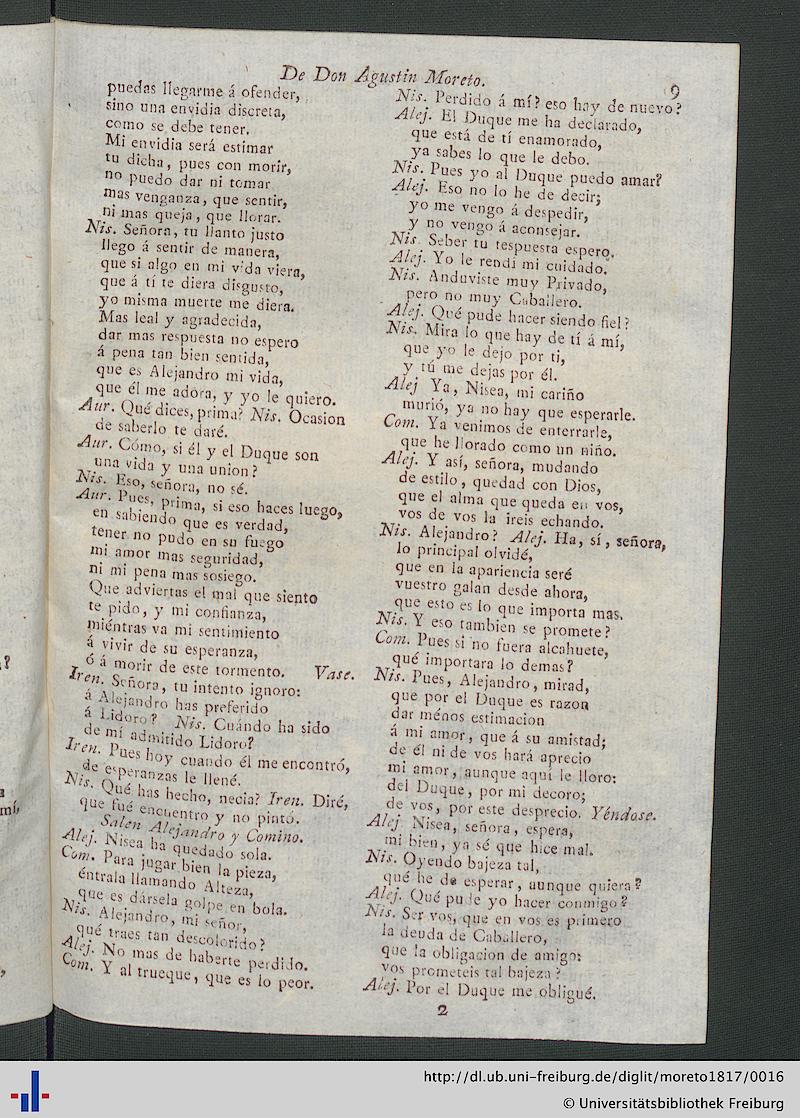 De Don Agustin Moreto.
9
puedas llegarme á ofender,
sino una envidia discreta,
como se debe tener.
Mi envidia será estimar
tu dicha, pues con morir,
no puedo dar ni tomar
mas venganza, que sentir,
ni mas queja, que llorar.
Nis. Señora, tu llanto justo
llego á sentir de manera,
que si algo en mi vida viera,
que á tí te diera disgusto,
yo misma muerte me diera.
Mas leal y agradecida,
dar mas respuesta no espero
á pena tan bien sentida,
que es Alejandro mi vida,
que él me adora, y yo le quiero.
Aur. Qué dices, prima? Nis. Ocasion
de saberlo te daré.
Aur. Cómo, si él y el Duque son
una vida y una union?
Nis. Eso, señora, no sé.
Aur. Pues, prima, si eso haces luego,
en sabiendo que es verdad,
tener no pudo en su fuego
mi amor mas seguridad,
ni mi pena mas sosiego.
Que adviertas el mal que siento
te pido, y mi confianza,
miéntras va mi sentimiento
á vivir de su esperanza,
ó á morir de este tormento. Vase.
Iren. Señora, tu intento ignoro:
á Alejandro has preferido
á Lidoro? Nis. Cuándo ha sido
de mí admitido Lidoro?
Iren. Pues hoy cuando él me encontró,
de esperanzas le llené.
Nis. Qué has hecho, necia? Iren. Diré,
que fué encuentro y no pintó.
Salen Alejandro y Comino.
Alej. Nisea ha quedado sola.
Com. Para jugar bien la pieza,
éntrala llamando Alteza,
que es dársela golpe en bola.
Nis. Alejandro, mi señor,
qué traes tan descolorido?
Alej. No mas de haberte perdido.
Com. Y al trueque, que es lo peor.
Nis. Perdido á mí? eso hay de nuevo?
Alej. El Duque me ha declarado,
que está de tí enamorado,
ya sabes lo que le debo.
Nis. Pues yo al Duque puedo amar?
Alej. Eso no lo he de decir;
yo me vengo á despedir,
y no vengo á aconsejar.
Nis. Seber tu tespuesta espero.
Alej. Yo le rendí mi cuidado.
Nis. Anduviste muy Privado,
pero no muy Caballero.
Alej. Qué pude hacer siendo fiel?
Nis. Mira lo que hay de tí á mí,
que yo le dejo por ti,
y tú me dejas por él.
Alej Ya, Nisea, mi cariño
murió, ya no hay que esperarle.
Com. Ya venimos de enterrarle,
que he llorado como un niño.
Alej. Y así, señora, mudando
de estilo, quedad con Dios,
que el alma que queda en vos,
vos de vos la ireis echando.
Nis. Alejandro? Alej. Ha, sí, señora,
lo principal olvidé,
que en la apariencia seré
vuestro galan desde ahora,
que esto es lo que importa mas.
Nis. Y eso tambien se promete?
Com. Pues si no fuera alcahuete,
qué importara lo demas?
Nis. Pues, Alejandro, mirad,
que por el Duque es razon
dar ménos estimacion
á mi amor, que á su amistad;
de él ni de vos hará aprecio
mi amor, aunque aquí le lloro:
del Duque, por mi decoro;
de vos, por este desprecio. Yéndose.
Alej Nisea, señora, espera,
mi bien, ya sé que hice mal.
Nis. Oyendo bajeza tal,
qué he de esperar, aunque quiera?
Alej. Qué pude yo hacer conmigo?
Nis. Ser vos, que en vos es primero
la deuda de Caballero,
que la obligacion de amigo:
vos prometeis tal bajeza?
Alej. Por el Duque me obligué.
2
http://dl.ub.uni-freiburg.de/diglit/moreto1817/0016
© Universitätsbibliothek Freiburg